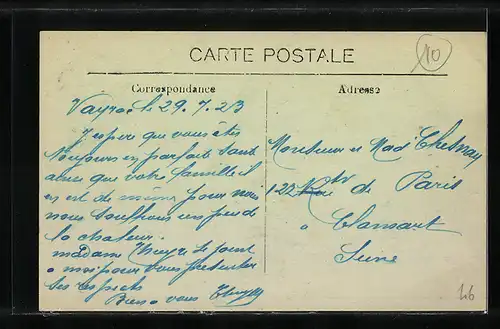 CARTE POSTALE
10
Correspondance
Adresse
Vayrac le 29.7.23
J'espère que vous êtes
toujours en parfait santé
ainsi que votre famille il
en est de même pour nous
nous souffrons un peu de
la chaleur.
madame se joint
a moi pour vous présenter
ses respects
Bien a vous
Monsieur et Mad Chesnay
122 Rte de Paris
a Clamart
Seine